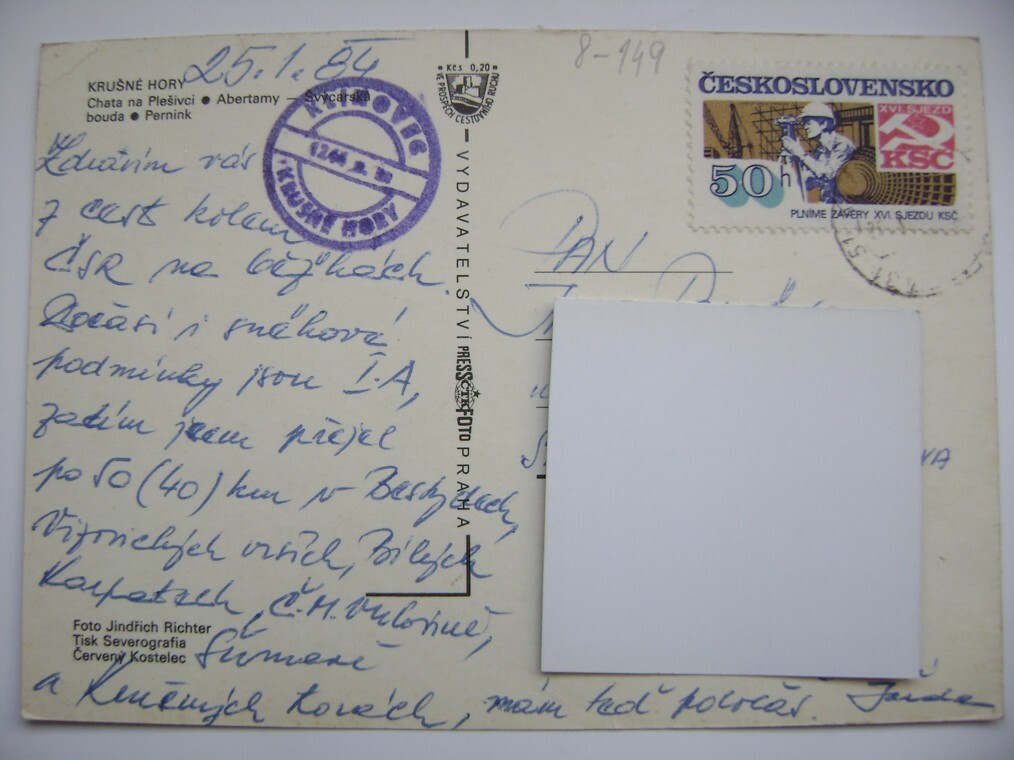 25.1.84
8-149
KRUŠNÉ HORY
Chata na Plešivci ● Abertamy — Švýcarská
bouda ● Pernink
KRUŠNÉ HORY
Kčs 0,20
VE PROSPĚCH CESTOVNÍHO RUCHU
ČESKOSLOVENSKO
XVI. SJEZD
KSČ
50 h
PLNÍME ZÁVĚRY XVI. SJEZDU KSČ
Zdravím vás
z cest kolem
ČSR na běžkách.
Počasí i sněhové
podmínky jsou I.A,
zatím jsem přejel
po 50 (40) km v Beskydech,
Vizovických vrších, Bílých
Karpatech, Č.M. Vrchovině,
Šumavě
a Krušných horách, mám teď poločas. Jarda
VYDAVATELSTVÍ PRESSFOTO PRAHA
ČTK
PAN
VA
Foto Jindřich Richter
Tisk Severografia
Červený Kostelec